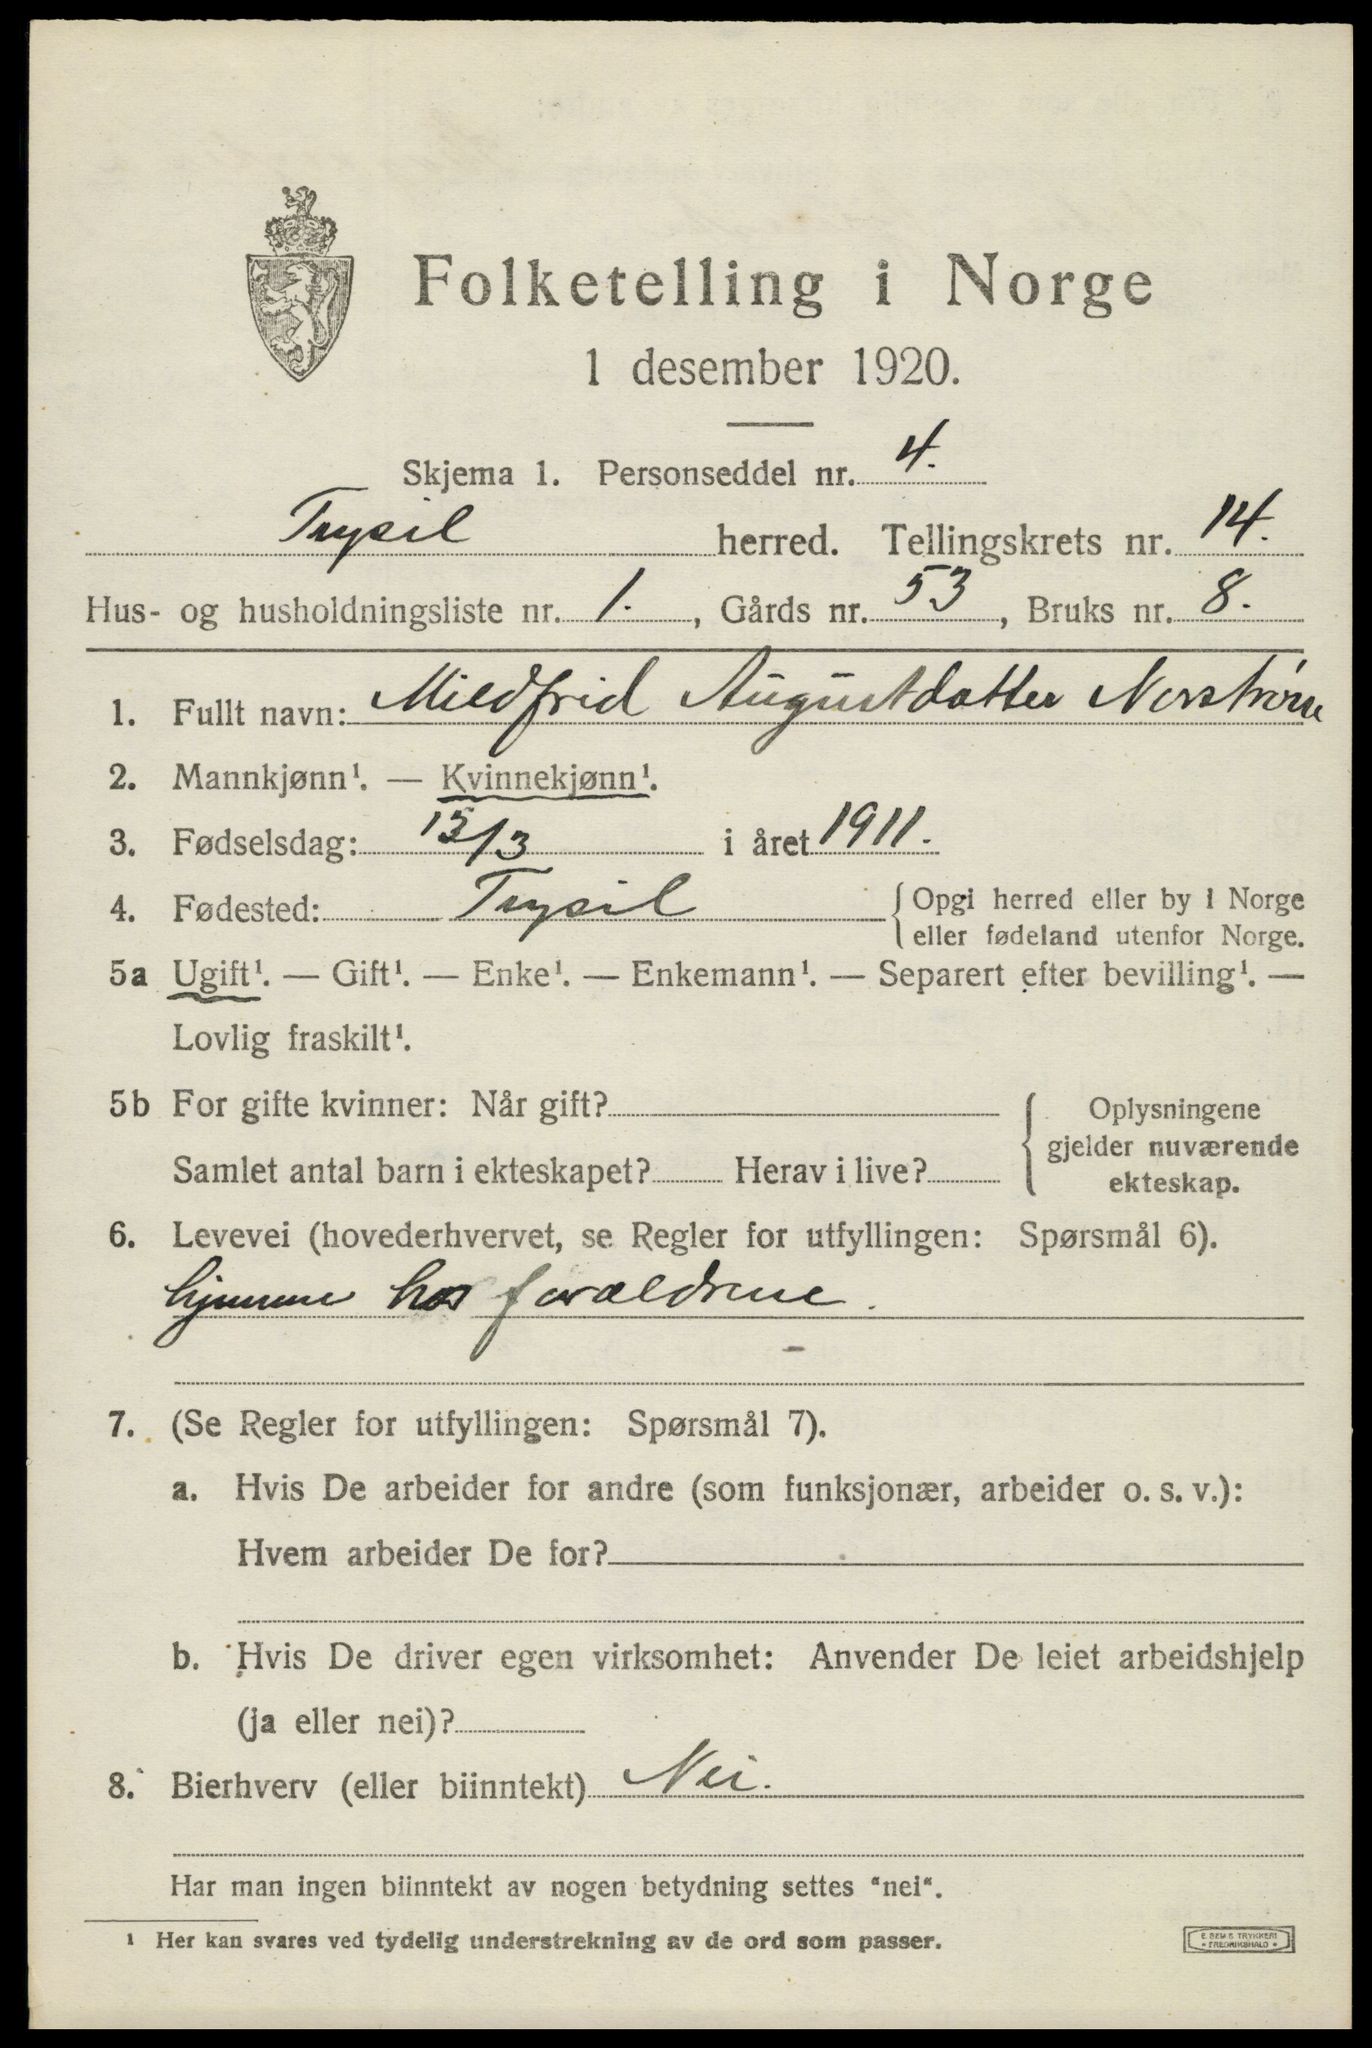 Folketelling i Norge
1 desember 1920.
Skjema 1. Personseddel nr. 4.
Trysil herred. Tellingskrets nr. 14.
Hus- og husholdningsliste nr. 1. , Gårds nr. 53 , Bruks nr. 8.
1. Fullt navn: Mildfrid Augustdatter Norstrøm
2. Mannkjønn¹. — Kvinnekjønn¹.
3. Fødselsdag: 15/3 i året 1911.
4. Fødested: Trysil { Opgi herred eller by i Norge
eller fødeland utenfor Norge.
5a Ugift¹. — Gift¹. — Enke¹. — Enkemann¹. — Separert efter bevilling¹. —
Lovlig fraskilt¹.
5b For gifte kvinner: Når gift?
Samlet antal barn i ekteskapet? Herav i live?
{ Oplysningene
gjelder nuværende
ekteskap.
6. Levevei (hovederhvervet, se Regler for utfyllingen: Spørsmål 6).
hjemme hos forældrene.
7. (Se Regler for utfyllingen: Spørsmål 7).
a. Hvis De arbeider for andre (som funksjonær, arbeider o. s. v.):
Hvem arbeider De for?
b. Hvis De driver egen virksomhet: Anvender De leiet arbeidshjelp
(ja eller nei)?
8. Bierhverv (eller biinntekt) Nei.
Har man ingen biinntekt av nogen betydning settes "nei".
¹ Her kan svares ved tydelig understrekning av de ord som passer.
E. SEM'S TRYKKERI
FREDRIKSHALD